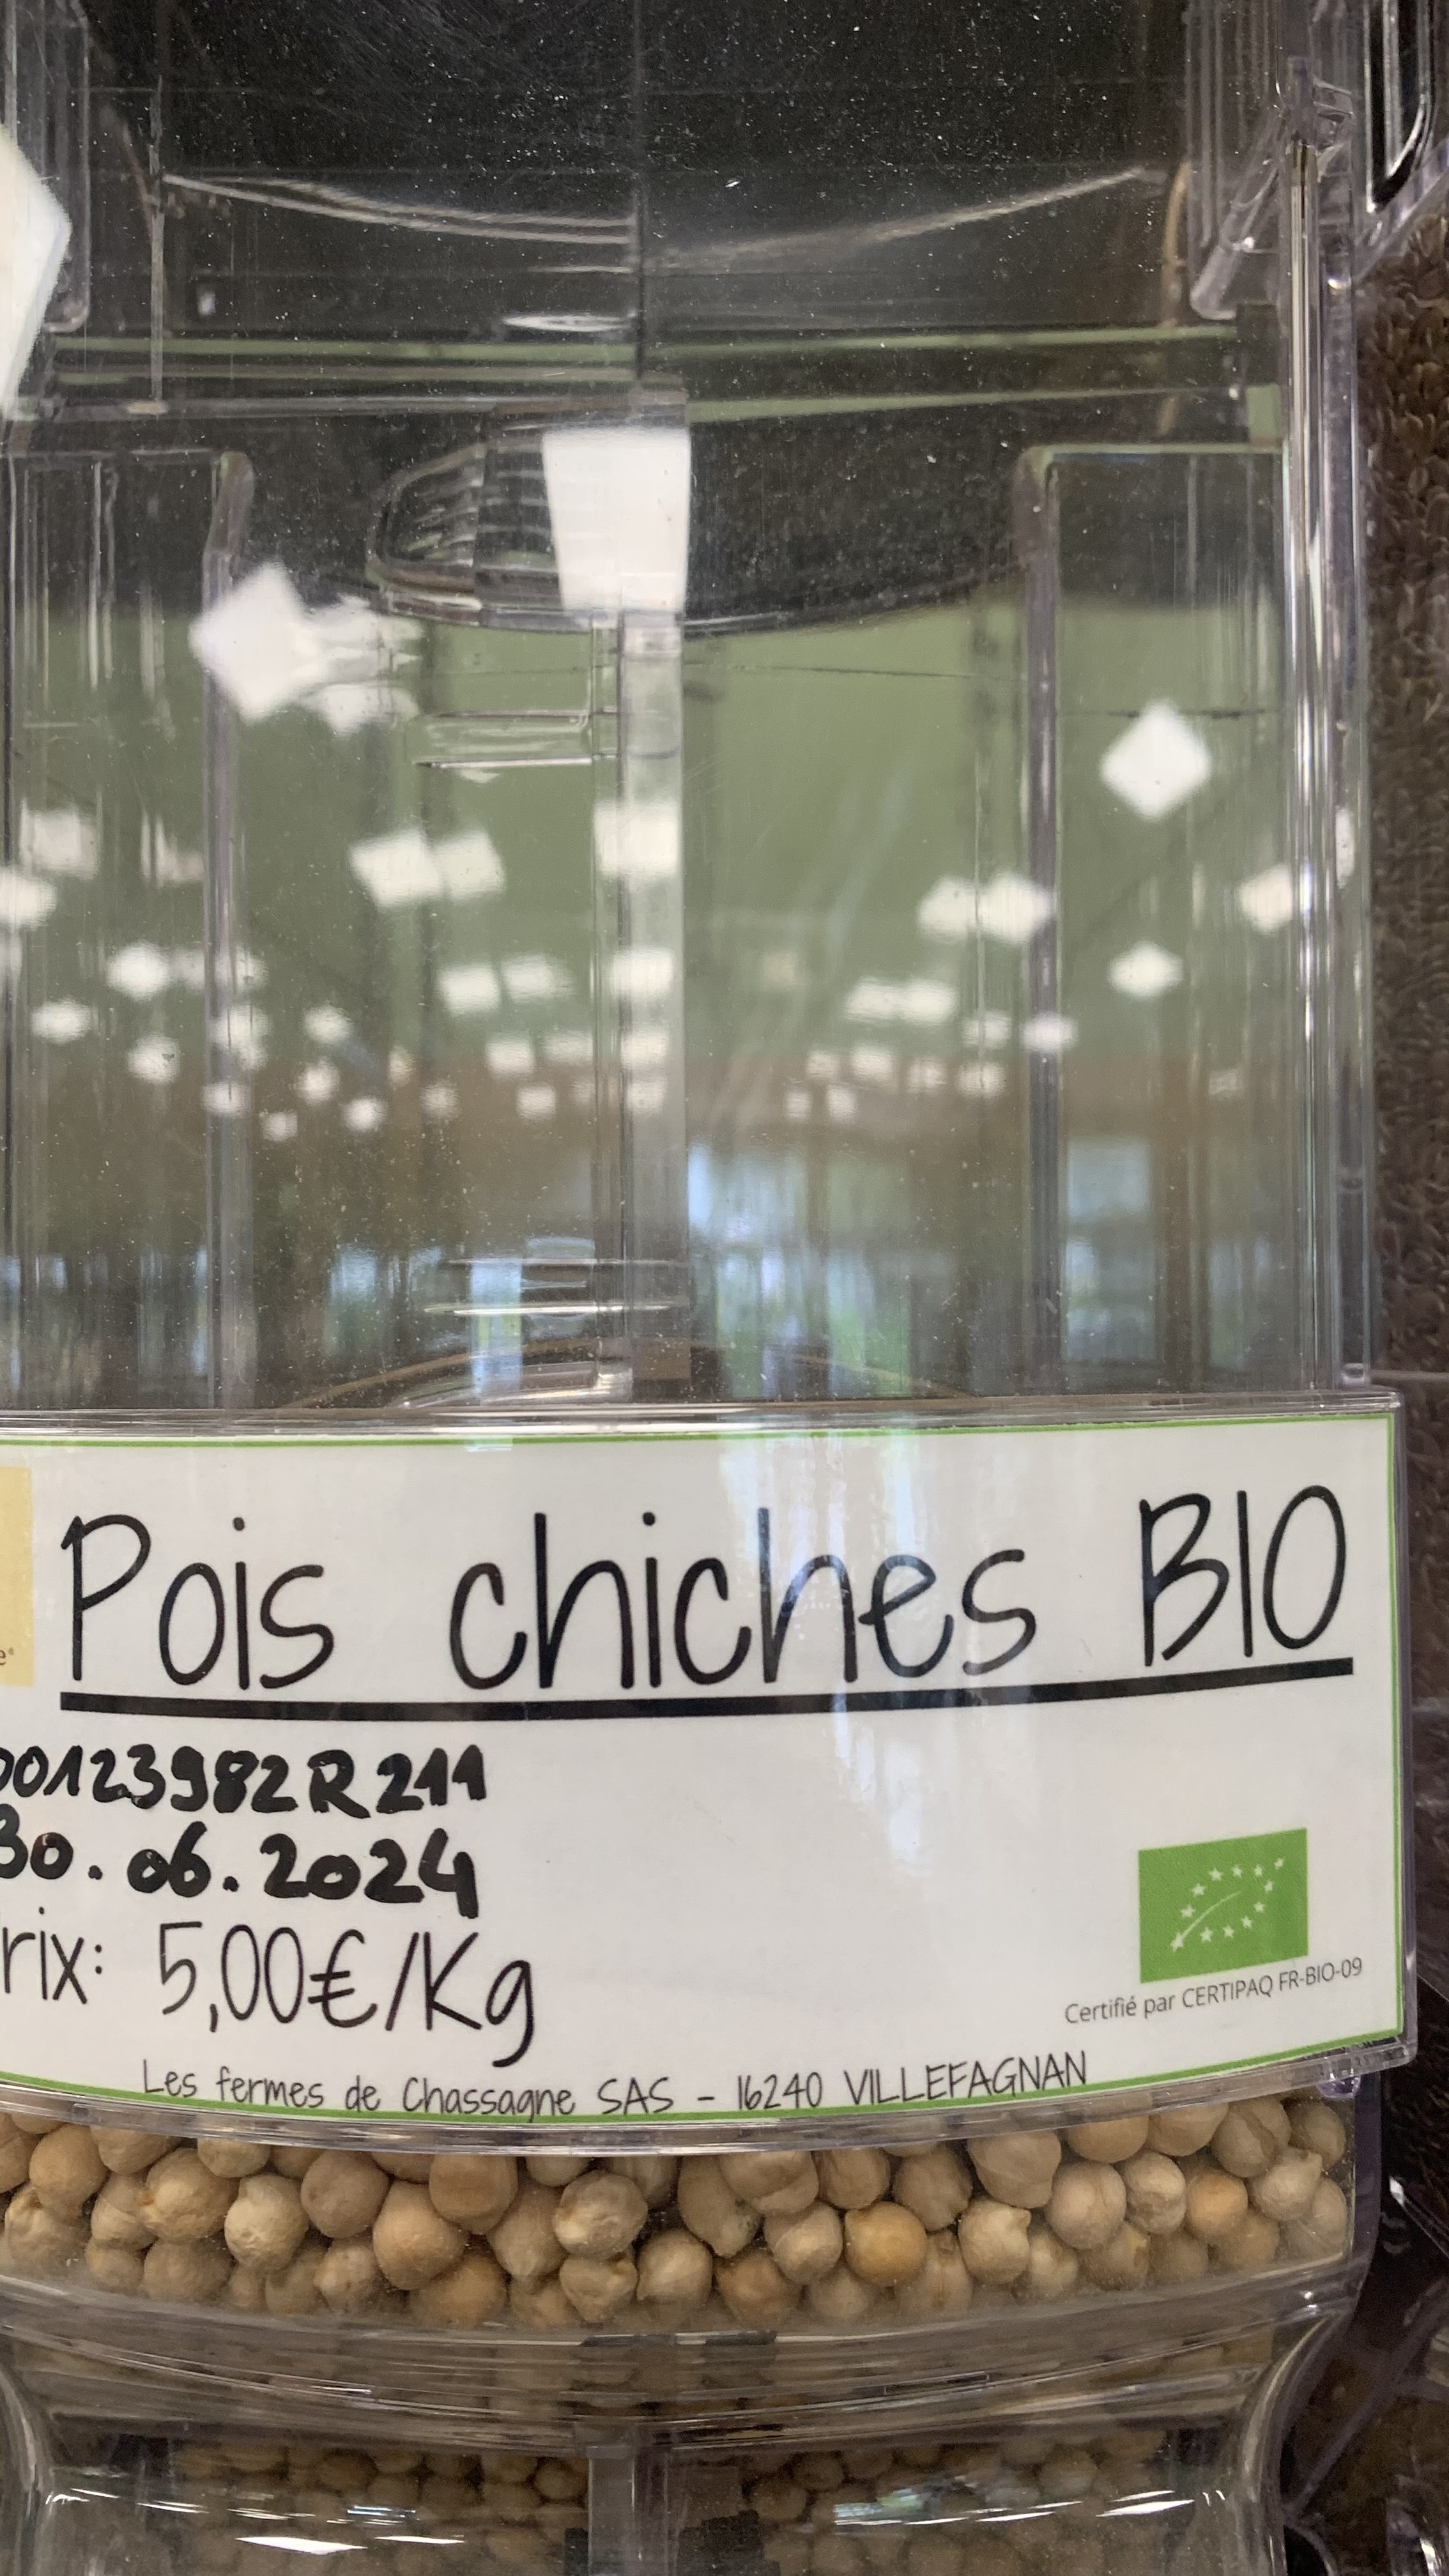 Pois chiches BIO
00123982R211
30.06.2024
rix: 5,00€/Kg
Certifié par CERTIPAQ FR-BIO-09
Les fermes de Chassagne SAS - 16240 VILLEFAGNAN